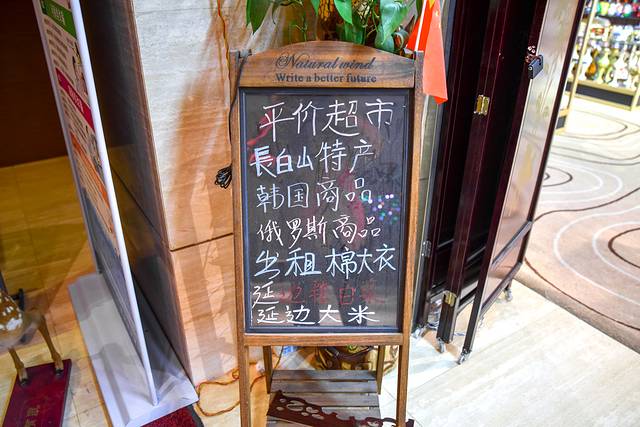 Natural wind
Write a better future
平价超市
長白山特产
韩国商品
俄罗斯商品
出租棉大衣
延
延边大米